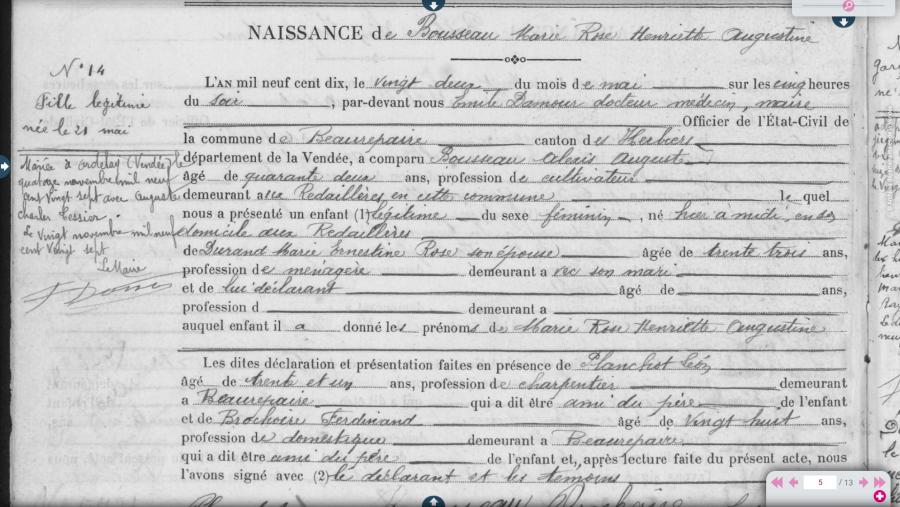 NAISSANCE de Bousseau Marie Rose Henriette Augustine
N° 14
Fille légitime
née le 21 mai
Mariée à Ardelay (Vendée) le
quatorze novembre mil neuf
cent vingt sept avec Auguste
Charles Tessier.
Le vingt novembre mil neuf
cent vingt sept
Le Maire
L'AN mil neuf cent dix, le vingt deux du mois de mai sur les cinq heures
du soir, par-devant nous Emile Damour docteur médecin, maire
Officier de l'État-Civil de
la commune de Beaurepaire canton des Herbiers
département de la Vendée, a comparu Bousseau Alexis Auguste
âgé de quarante deux ans, profession de cultivateur
demeurant aux Redaillères en cette commune lequel
nous a présenté un enfant (1) légitime du sexe féminin, né hier à midi, en son
domicile aux Redaillères
de Durand Marie Ernestine Rose son épouse âgée de trente trois ans,
profession de ménagère demeurant avec son mari
et de lui déclarant âgé de ans,
profession d demeurant a
auquel enfant il a donné les prénoms de Marie Rose Henriette Augustine
Les dites déclaration et présentation faites en présence de Planchot Léon
âgé de trente et un ans, profession de charpentier demeurant
a Beaurepaire qui a dit être ami du père de l'enfant
et de Brochoire Ferdinand âgé de vingt huit ans,
profession de domestique demeurant a Beaurepaire
qui a dit être ami du père de l'enfant et, après lecture faite du présent acte, nous
l'avons signé avec (2) le déclarant et les témoins
5 / 13